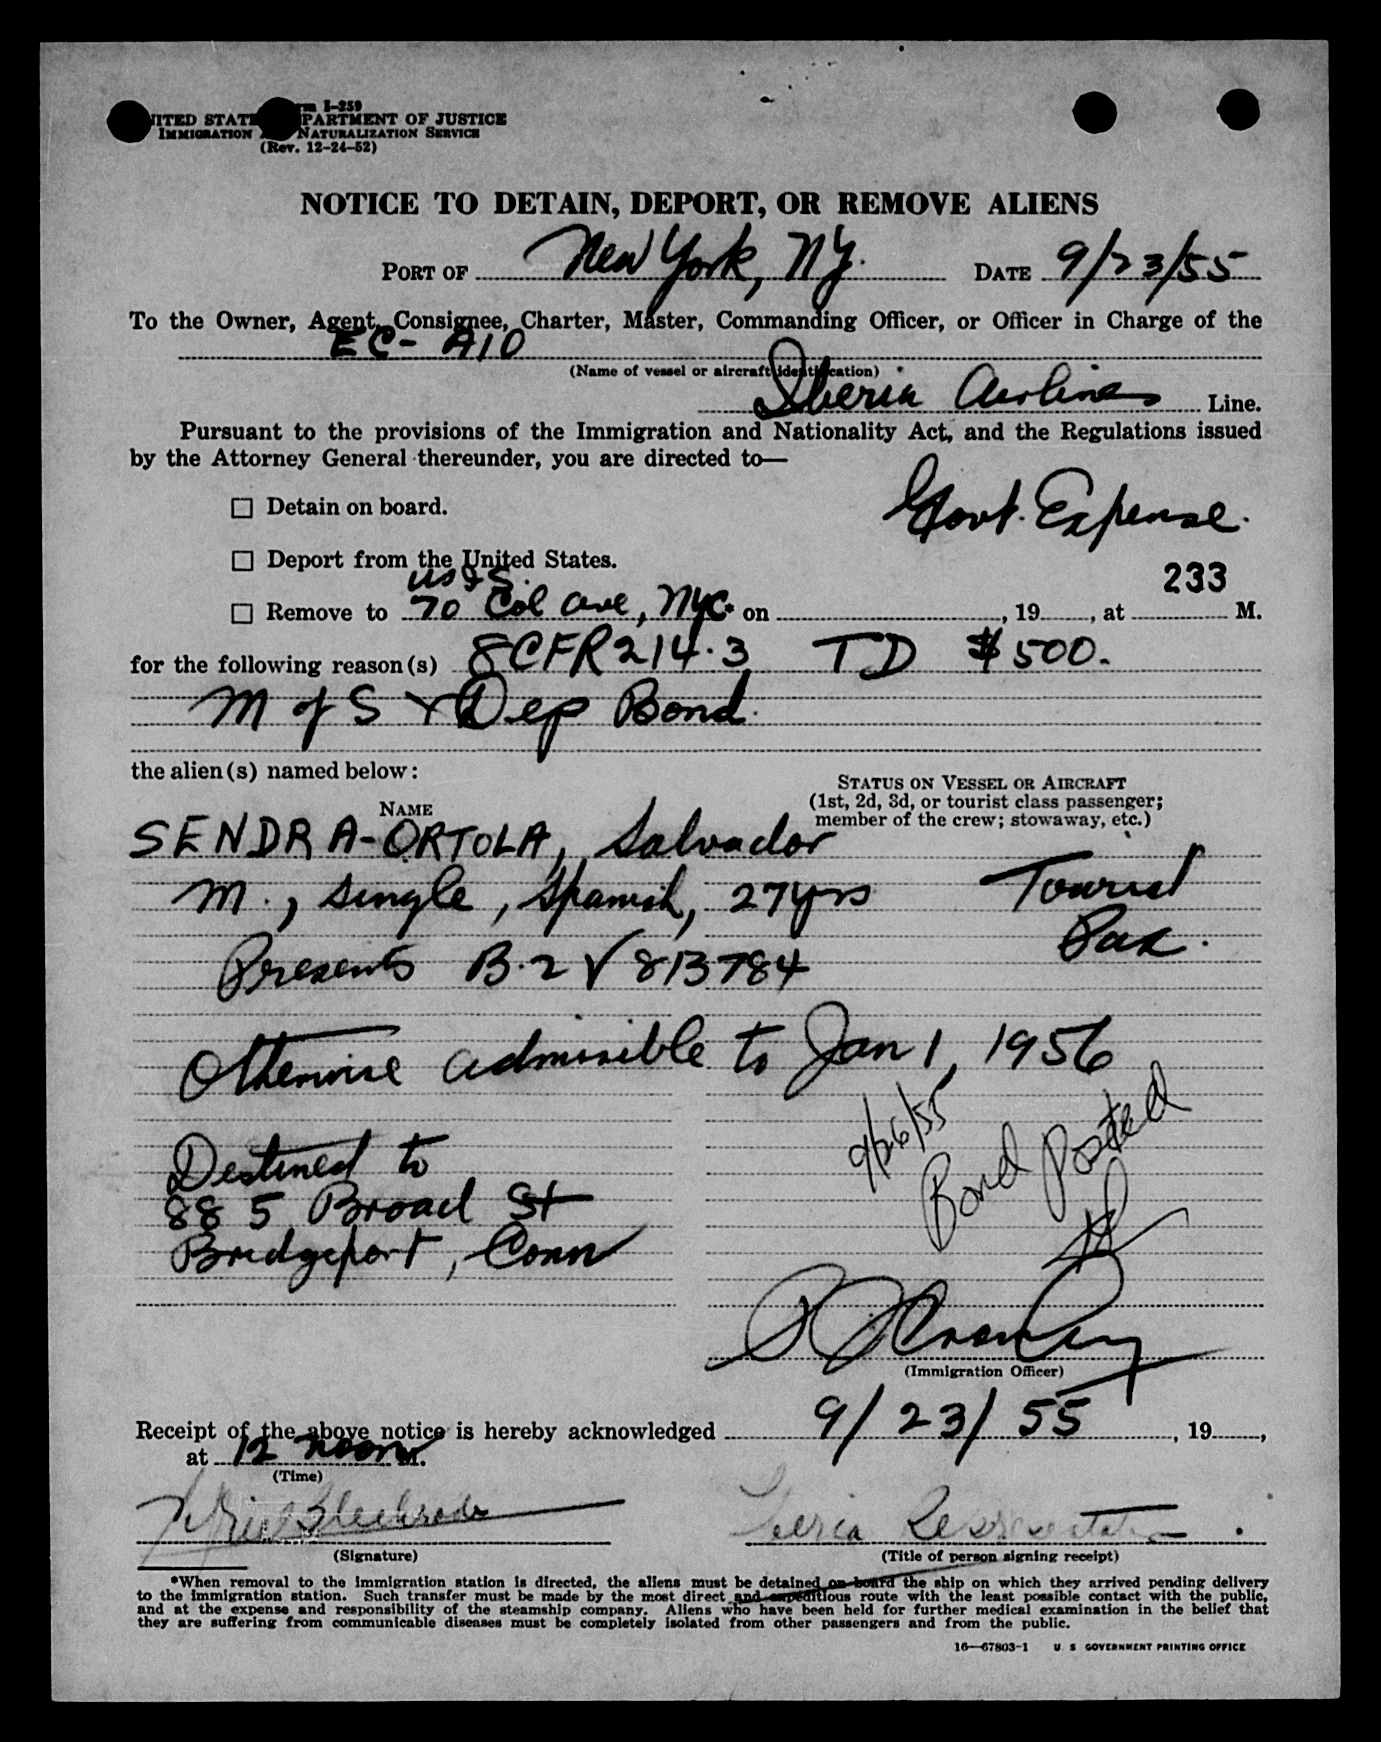 Form I-259
UNITED STATES DEPARTMENT OF JUSTICE
IMMIGRATION AND NATURALIZATION SERVICE
(Rev. 12-24-52)
NOTICE TO DETAIN, DEPORT, OR REMOVE ALIENS
PORT OF New York, NY. DATE 9/23/55
To the Owner, Agent, Consignee, Charter, Master, Commanding Officer, or Officer in Charge of the
EC-AIO
(Name of vessel or aircraft identification)
Iberia Airlines Line.
Pursuant to the provisions of the Immigration and Nationality Act, and the Regulations issued
by the Attorney General thereunder, you are directed to—
☐ Detain on board.
Govt. Expense.
☐ Deport from the United States.
233
☐ Remove to 70 Col ave, NYC* on , 19 , at M.
for the following reason(s) 8CFR214.3 TD $500.
M of S & Dep Bond.
the alien(s) named below:
STATUS ON VESSEL OR AIRCRAFT
(1st, 2d, 3d, or tourist class passenger;
member of the crew; stowaway, etc.)
NAME
SENDRA-ORTOLA, Salvador
M., single, Spanish, 27yrs Tourist
Pax.
Presents B-2 V 813784
Otherwise admissible to Jan 1, 1956
9/26/55
Bond Posted
Destined to
885 Broad St
Bridgeport, Conn
(Immigration Officer)
Receipt of the above notice is hereby acknowledged 9/23/55, 19 ,
at 12 noon M.
(Time)
Iberia Representative
(Signature) (Title of person signing receipt)
*When removal to the immigration station is directed, the aliens must be detained on board the ship on which they arrived pending delivery
to the immigration station. Such transfer must be made by the most direct and expeditious route with the least possible contact with the public,
and at the expense and responsibility of the steamship company. Aliens who have been held for further medical examination in the belief that
they are suffering from communicable diseases must be completely isolated from other passengers and from the public.
16—67803-1 U. S. GOVERNMENT PRINTING OFFICE